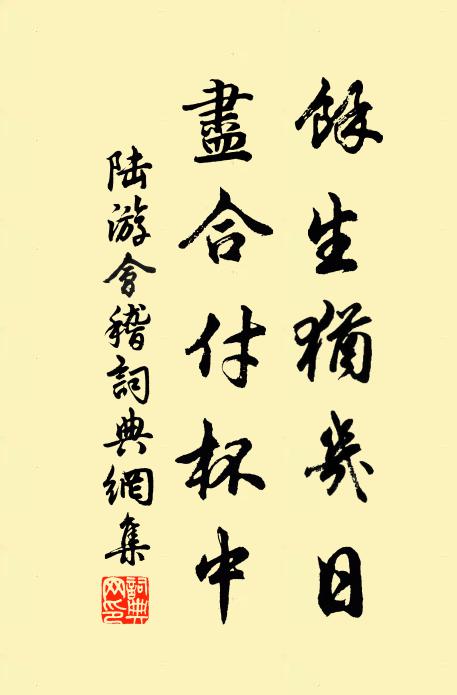 餘生猶幾日
盡合付杯中
陸游會稽詞典網集
詞典網印